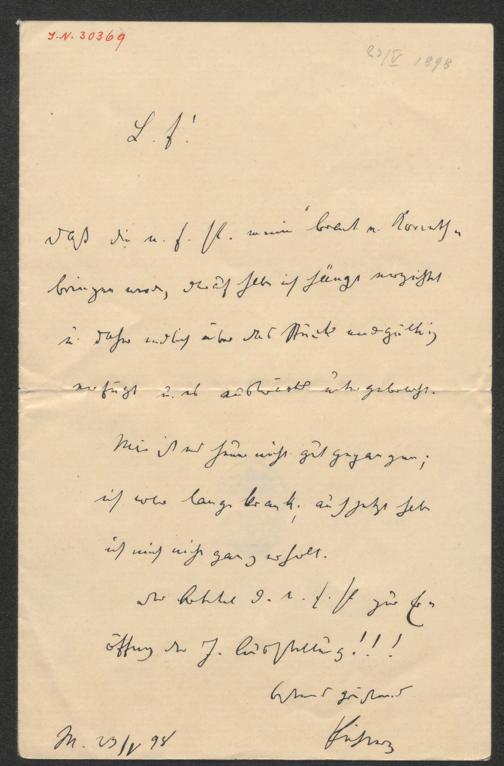 J.N. 30369
23/V 1898
L. f!
daß die n. f. H. meine braut n.
bringen werde, darauf habe ich längst verzichtet
u. daher endlich über das Stück endgültig
verfügt u. es auswärts untergebracht.
Mir ist es heuer nicht gut gegangen;
ich war lange krank; auch jetzt habe
ich mich nicht ganz erholt.
der d. n. f. H zur Er
öffnung der J. Ausstellung!!!
grüßend
M. 23/V 98